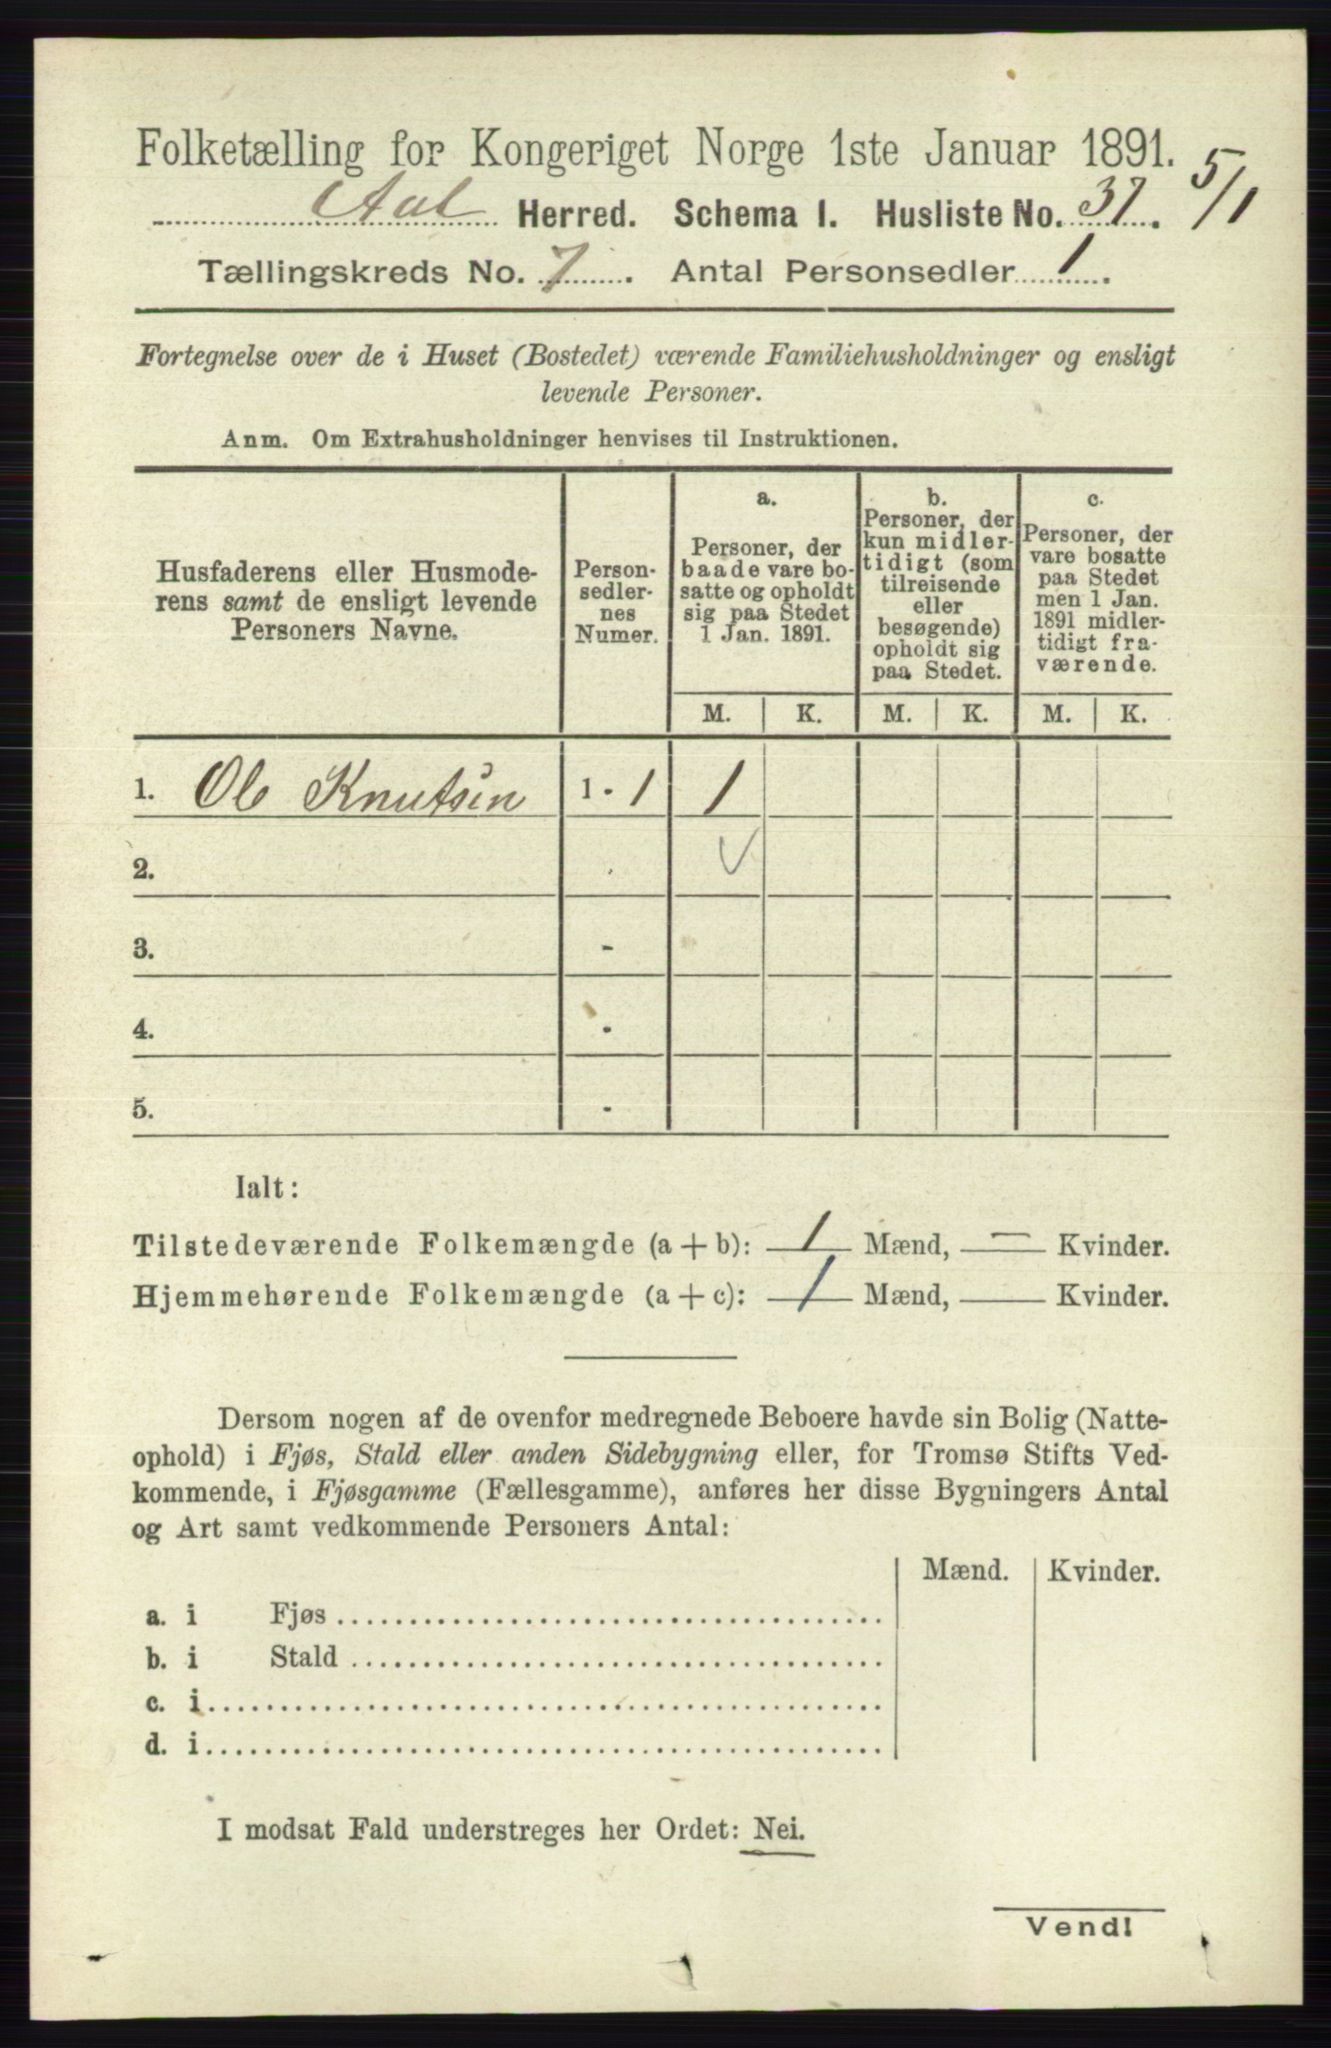 Folketælling for Kongeriget Norge 1ste Januar 1891.
Aal Herred. Schema I. Husliste No. 37. 5/1
Tællingskreds No. 7. Antal Personsedler 1.
Fortegnelse over de i Huset (Bostedet) værende Familiehusholdninger og ensligt
levende Personer.
Anm. Om Extrahusholdninger henvises til Instruktionen.
Husfaderens eller Husmode-
rens samt de ensligt levende
Personers Navne.
Person-
sedler-
nes
Numer.
a.
Personer, der
baade vare bo-
satte og opholdt
sig paa Stedet
1 Jan. 1891.
b.
Personer, der
kun midler-
tidigt (som
tilreisende
eller
besøgende)
opholdt sig
paa Stedet.
c.
Personer, der
vare bosatte
paa Stedet
men 1 Jan.
1891 midler-
tidigt fra-
værende.
M. K. M. K. M. K.
1. Ole Knutsen 1 - 1 1
2.
3. -
4. -
5. -
Ialt:
Tilstedeværende Folkemængde (a + b): 1 Mænd, — Kvinder.
Hjemmehørende Folkemængde (a + c): 1 Mænd, Kvinder.
Dersom nogen af de ovenfor medregnede Beboere havde sin Bolig (Natte-
ophold) i Fjøs, Stald eller anden Sidebygning eller, for Tromsø Stifts Ved-
kommende, i Fjøsgamme (Fællesgamme), anføres her disse Bygningers Antal
og Art samt vedkommende Personers Antal:
Mænd. Kvinder.
a. i Fjøs
b. i Stald
c. i
d. i
I modsat Fald understreges her Ordet: Nei.
Vend!